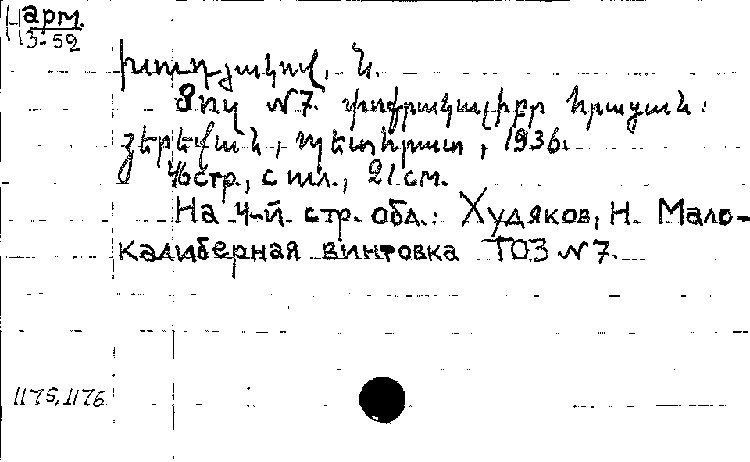 арм.
3-59
Խուդյակով, Ն.
Տոզ №7. փոքրակալիբր հրացան:
Յերեվան, պետհրատ, 1936.
46стр., с ил., 21 см.
На 4-й стр. обл.: Худяков, Н. Мало-
калиберная винтовка ТОЗ №7.
1175, 1176